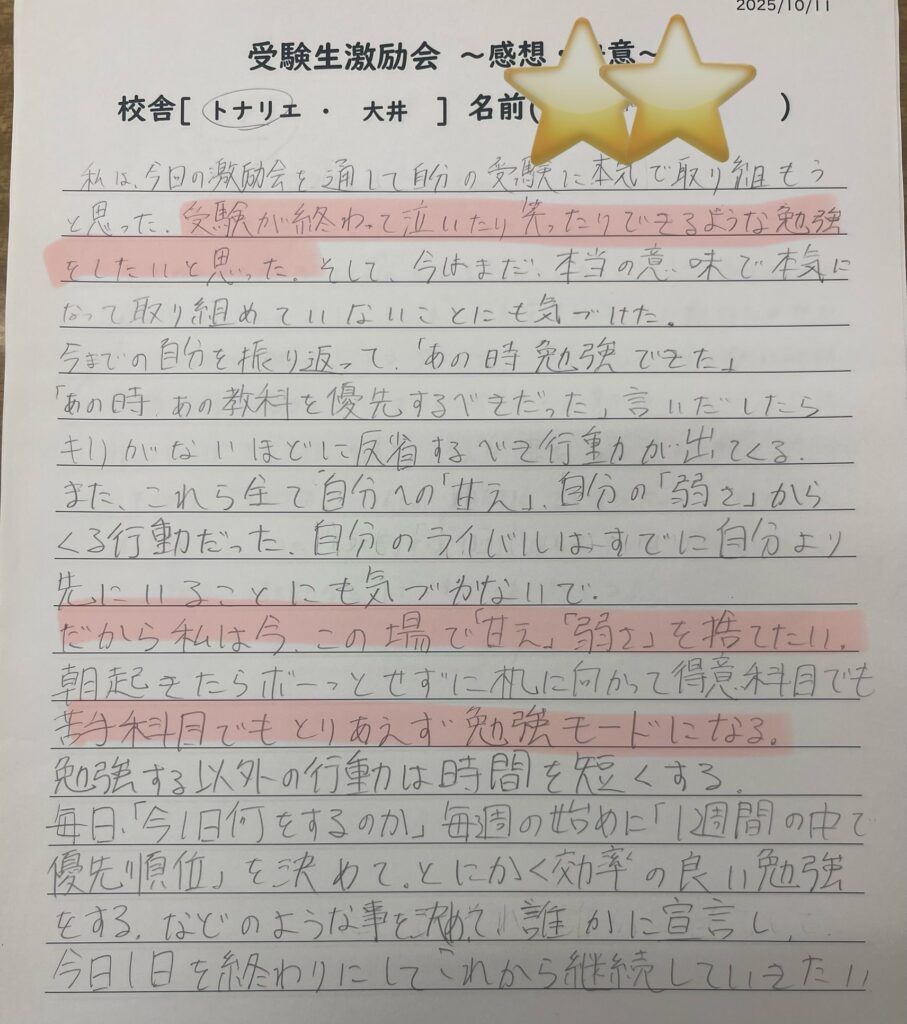 2025/10/11
受験生激励会 ～感想・意～
校舎[ トナリエ ・ 大井 ] 名前( )
私は、今回の激励会を通して自分の受験に本気で取り組もう
と思った。受験が終わって泣いたり笑ったりできるような勉強
をしたいと思った。そして、今はまだ、本当の意味で本気に
なって取り組めていないことにも気づけた。
今までの自分を振り返って、「あの時勉強できた」
「あの時、あの教科を優先するべきだった」言いだしたら
キリがないほどに反省するべき行動が出てくる。
また、これら全て自分への「甘え」、自分の「弱さ」から
くる行動だった。自分のライバルはすでに自分より
先にいることにも気づかないで。
だから私は今、この場で「甘え」「弱さ」を捨てたい。
朝起きたらボーっとせずに机に向かって得意科目でも
苦手科目でもとりあえず勉強モードになる。
勉強する以外の行動は時間を短くする。
毎日、「今日1日何をするのか」毎週の始めに「1週間の中で
優先順位」を決めて、とにかく効率の良い勉強
をする。などのような事を決めて、誰かに宣言し、
今日1日を終わりにしてこれから継続していきたい